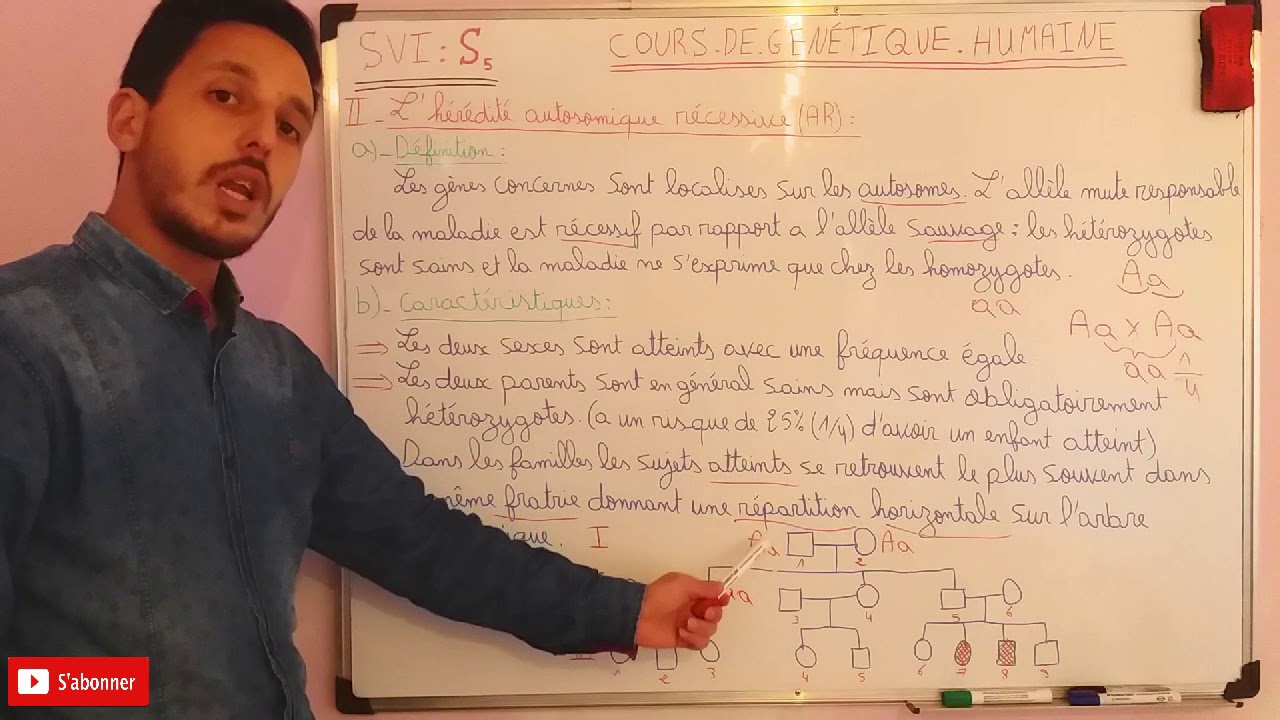 SVI : S5
COURS.DE.GÉNÉTIQUE.HUMAINE
II - L'hérédité autosomique récessive (AR) :
a) - Définition :
Les gènes concernes sont localises sur les autosomes. L'allèle mute responsable
de la maladie est récessif par rapport a l'allèle sauvage : les hétérozygotes
sont sains et la maladie ne s'exprime que chez les homozygotes.
Aa
aa
b) - Caractéristiques :
Aa x Aa
⇒ Les deux sexes sont atteints avec une fréquence égale.
aa 1/4
⇒ Les deux parents sont en général sains mais sont obligatoirement
hétérozygotes. (a un risque de 25% (1/4) d'avoir un enfant atteint)
Dans les familles les sujets atteints se retrouvent le plus souvent dans
même fratrie donnant une répartition horizontale sur l'arbre
ique. I
Aa Aa
1 2
aa
3 4 5 6
1 2 3 4 5 6 7 8 9
S'abonner